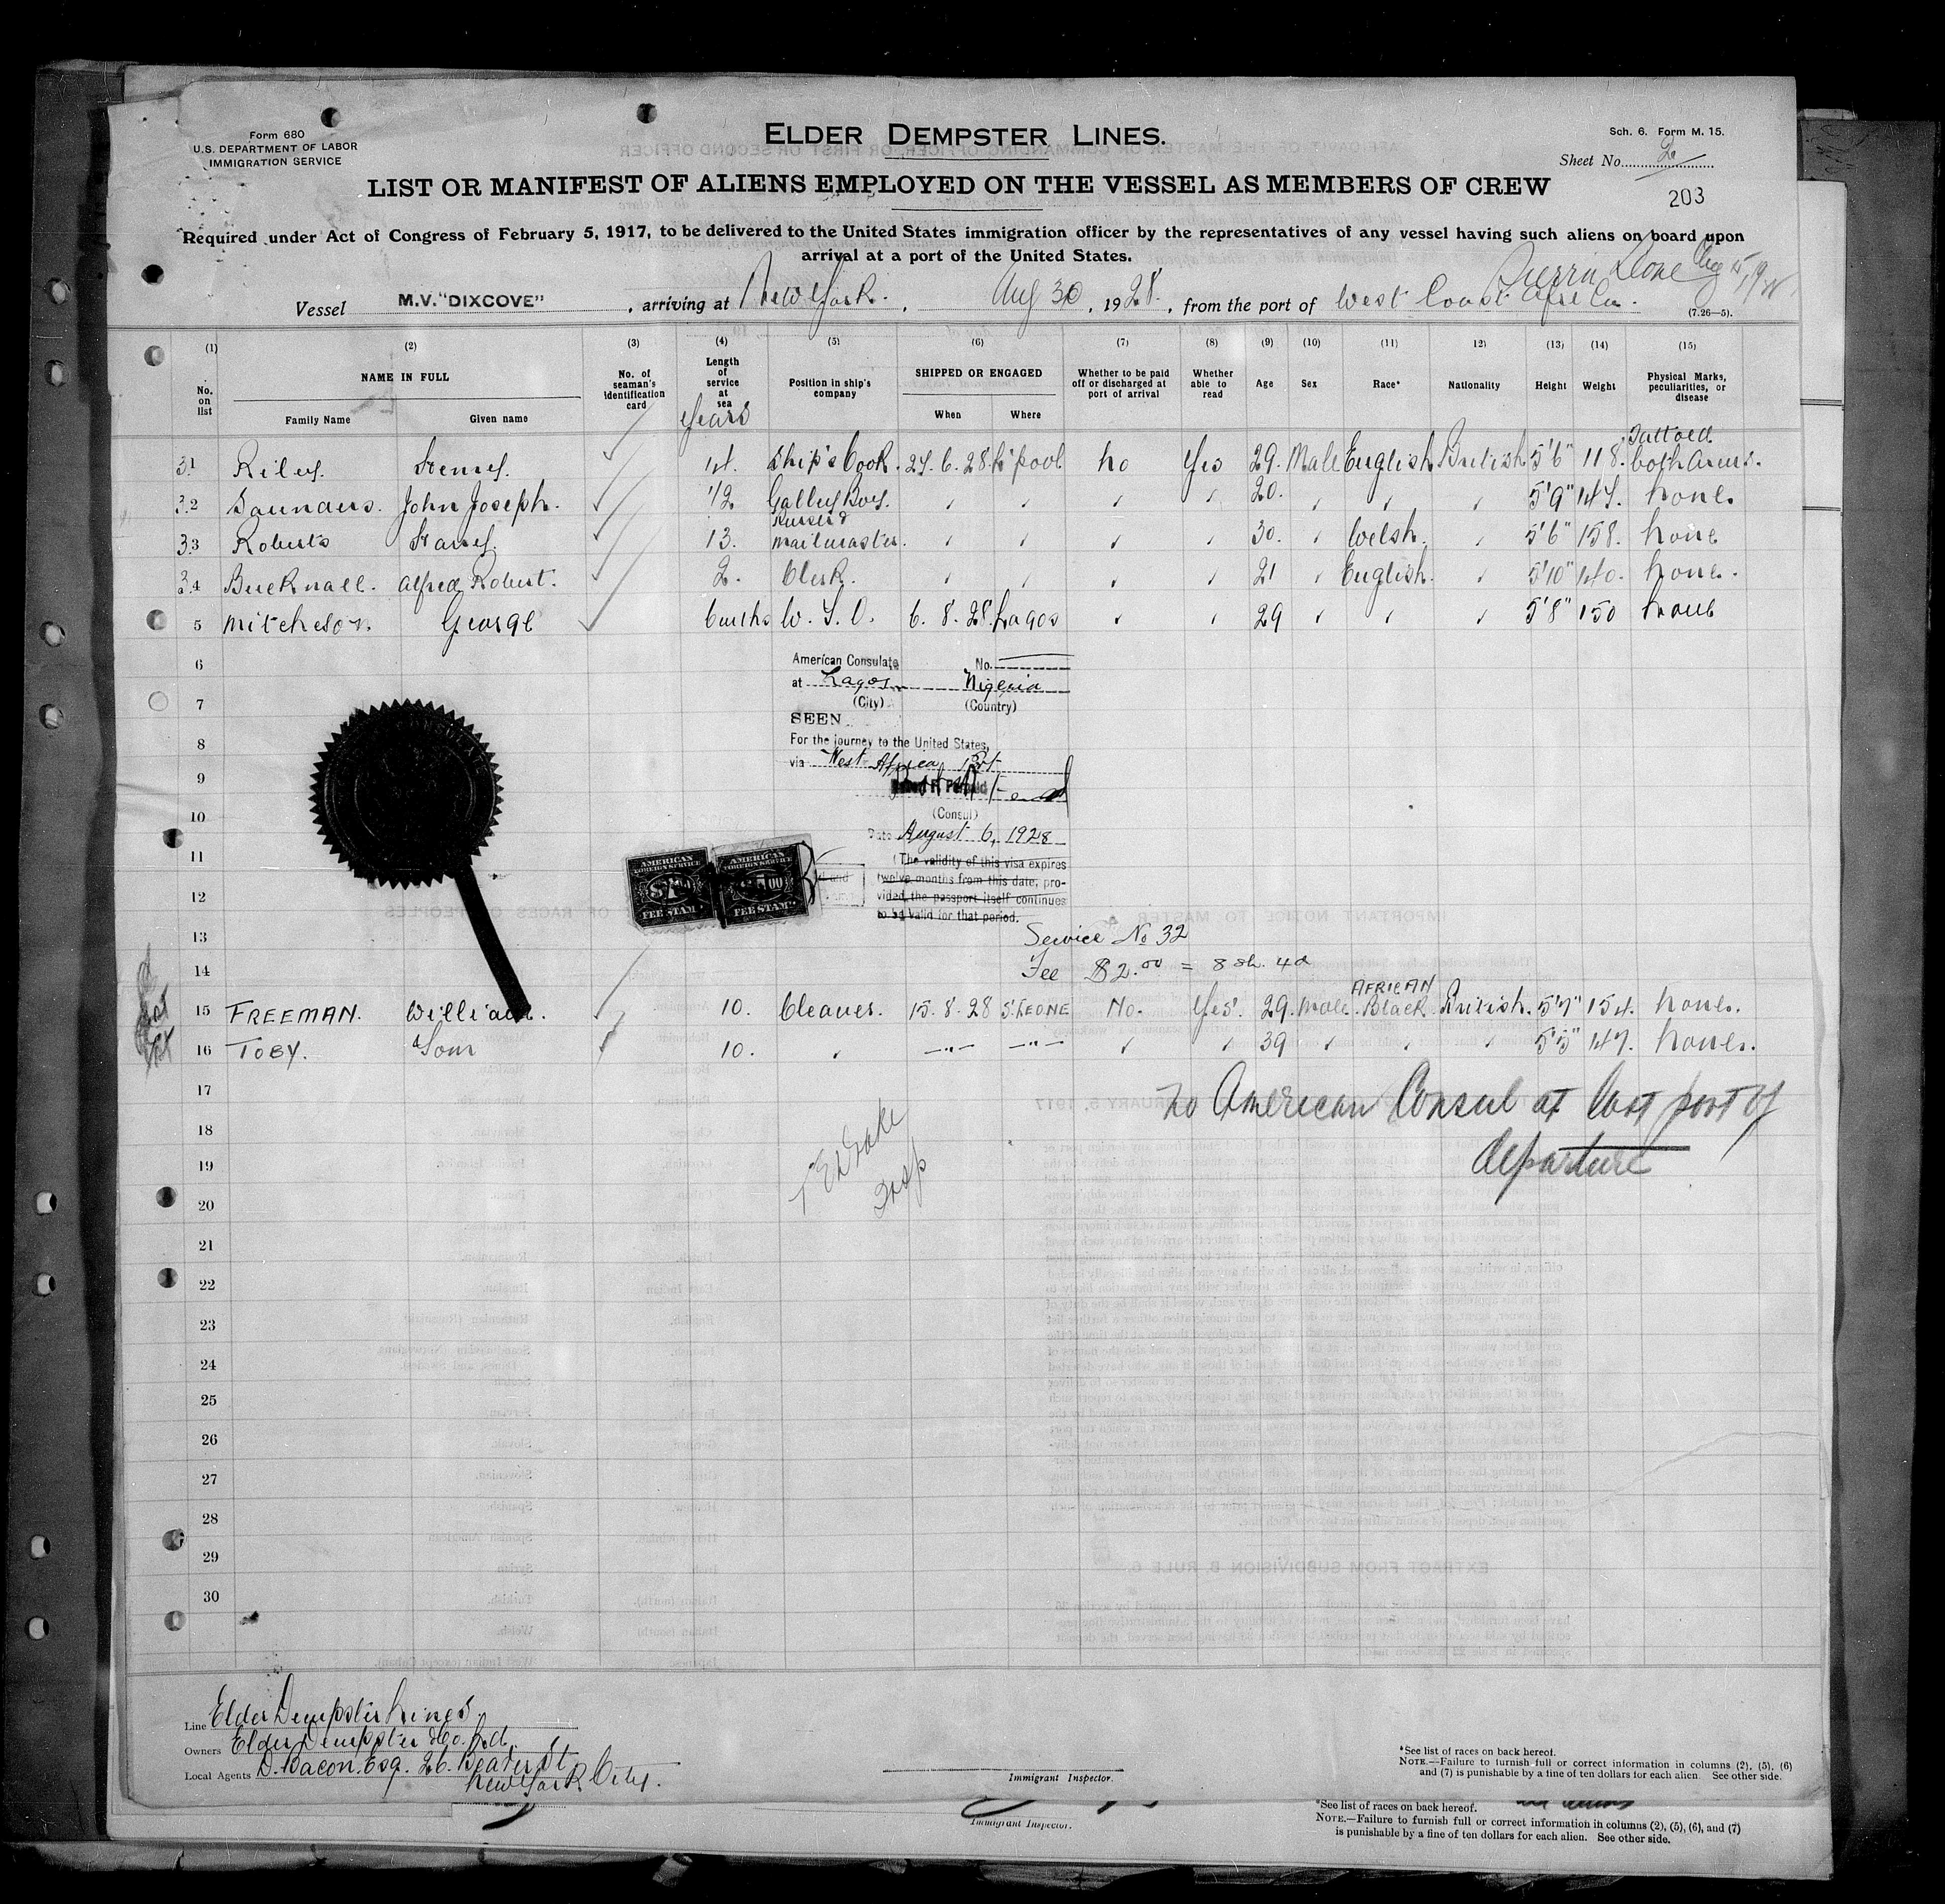 Form 680
U.S. DEPARTMENT OF LABOR
IMMIGRATION SERVICE
ELDER DEMPSTER LINES.
Sch. 6. Form M. 15.
Sheet No. 2
203
LIST OR MANIFEST OF ALIENS EMPLOYED ON THE VESSEL AS MEMBERS OF CREW
Required under Act of Congress of February 5, 1917, to be delivered to the United States immigration officer by the representatives of any vessel having such aliens on board upon
arrival at a port of the United States.
Vessel M.V. "DIXCOVE", arriving at New York., Aug 30, 1928, from the port of West Coast Africa.
(7.26—5).
(1) (2) (3) (4) (5) (6) (7) (8) (9) (10) (11) 12) (13) (14) (15)
No. on list
NAME IN FULL
Family Name Given name
No. of seaman's identification card
Length of service at sea
Years
Position in ship's company
SHIPPED OR ENGAGED
When Where
Whether to be paid off or discharged at port of arrival
Whether able to read
Age
Sex
Race*
Nationality
Height
Weight
Physical Marks, peculiarities, or disease
31 Riley. 14. Ship's Cook. 27. 6. 28. L'pool No Yes 29. Male English British 5'6" 118. Tattoed both Arms.
32 Saunders. John Joseph. 1/2 Galley Boy. 20. 5'9" 147. None.
33 Roberts 13. Purser & Mailmaster. 30. Welsh. 5'6" 158. None
34 Bucknall. Alfred Robert. 2. Clerk. 21 English. 5'10" 140. None.
5 Mitcheson. George 6 mths W.T.O. 6. 8. 28. Lagos 29 5'8" 150 None
6
American Consulate No.
at Lagos, Nigeria
7
(City) (Country)
SEEN
8
For the journey to the United States,
via West Africa Port
9
10
(Consul)
Date August 6, 1928
11
(The validity of this visa expires
twelve months from this date, pro-
12
vided, the passport itself continues
to be valid for that period.
AMERICAN
FOREIGN SERVICE
FEE STAMP
AMERICAN
FOREIGN SERVICE
FEE STAMP
13
Service No 32
14
Fee $2.00 = 8 sh. 4d
15 FREEMAN. William. 10. Cleaner. 15. 8. 28 S. LEONE No. Yes. 29. Male AFRICAN Black British. 5'7" 154. None.
16 TOBY. Tom 10. —"— —"— 39 5'5" 147. None.
17
No American Consul at last port of
18
departure
19
20
21
22
23
24
25
26
27
28
29
30
Line Elder Dempster Lines
Owners Elder Dempster & Co. Ltd.
Local Agents D. Bacon. Esq. 26. Beaver St
New York City.
Immigrant Inspector.
*See list of races on back hereof.
NOTE.—Failure to furnish full or correct information in columns (2), (5), (6)
and (7) is punishable by a fine of ten dollars for each alien. See other side.
Immigrant Inspector.
*See list of races on back hereof.
NOTE.—Failure to furnish full or correct information in columns (2), (5), (6), and (7)
is punishable by a fine of ten dollars for each alien. See other side.